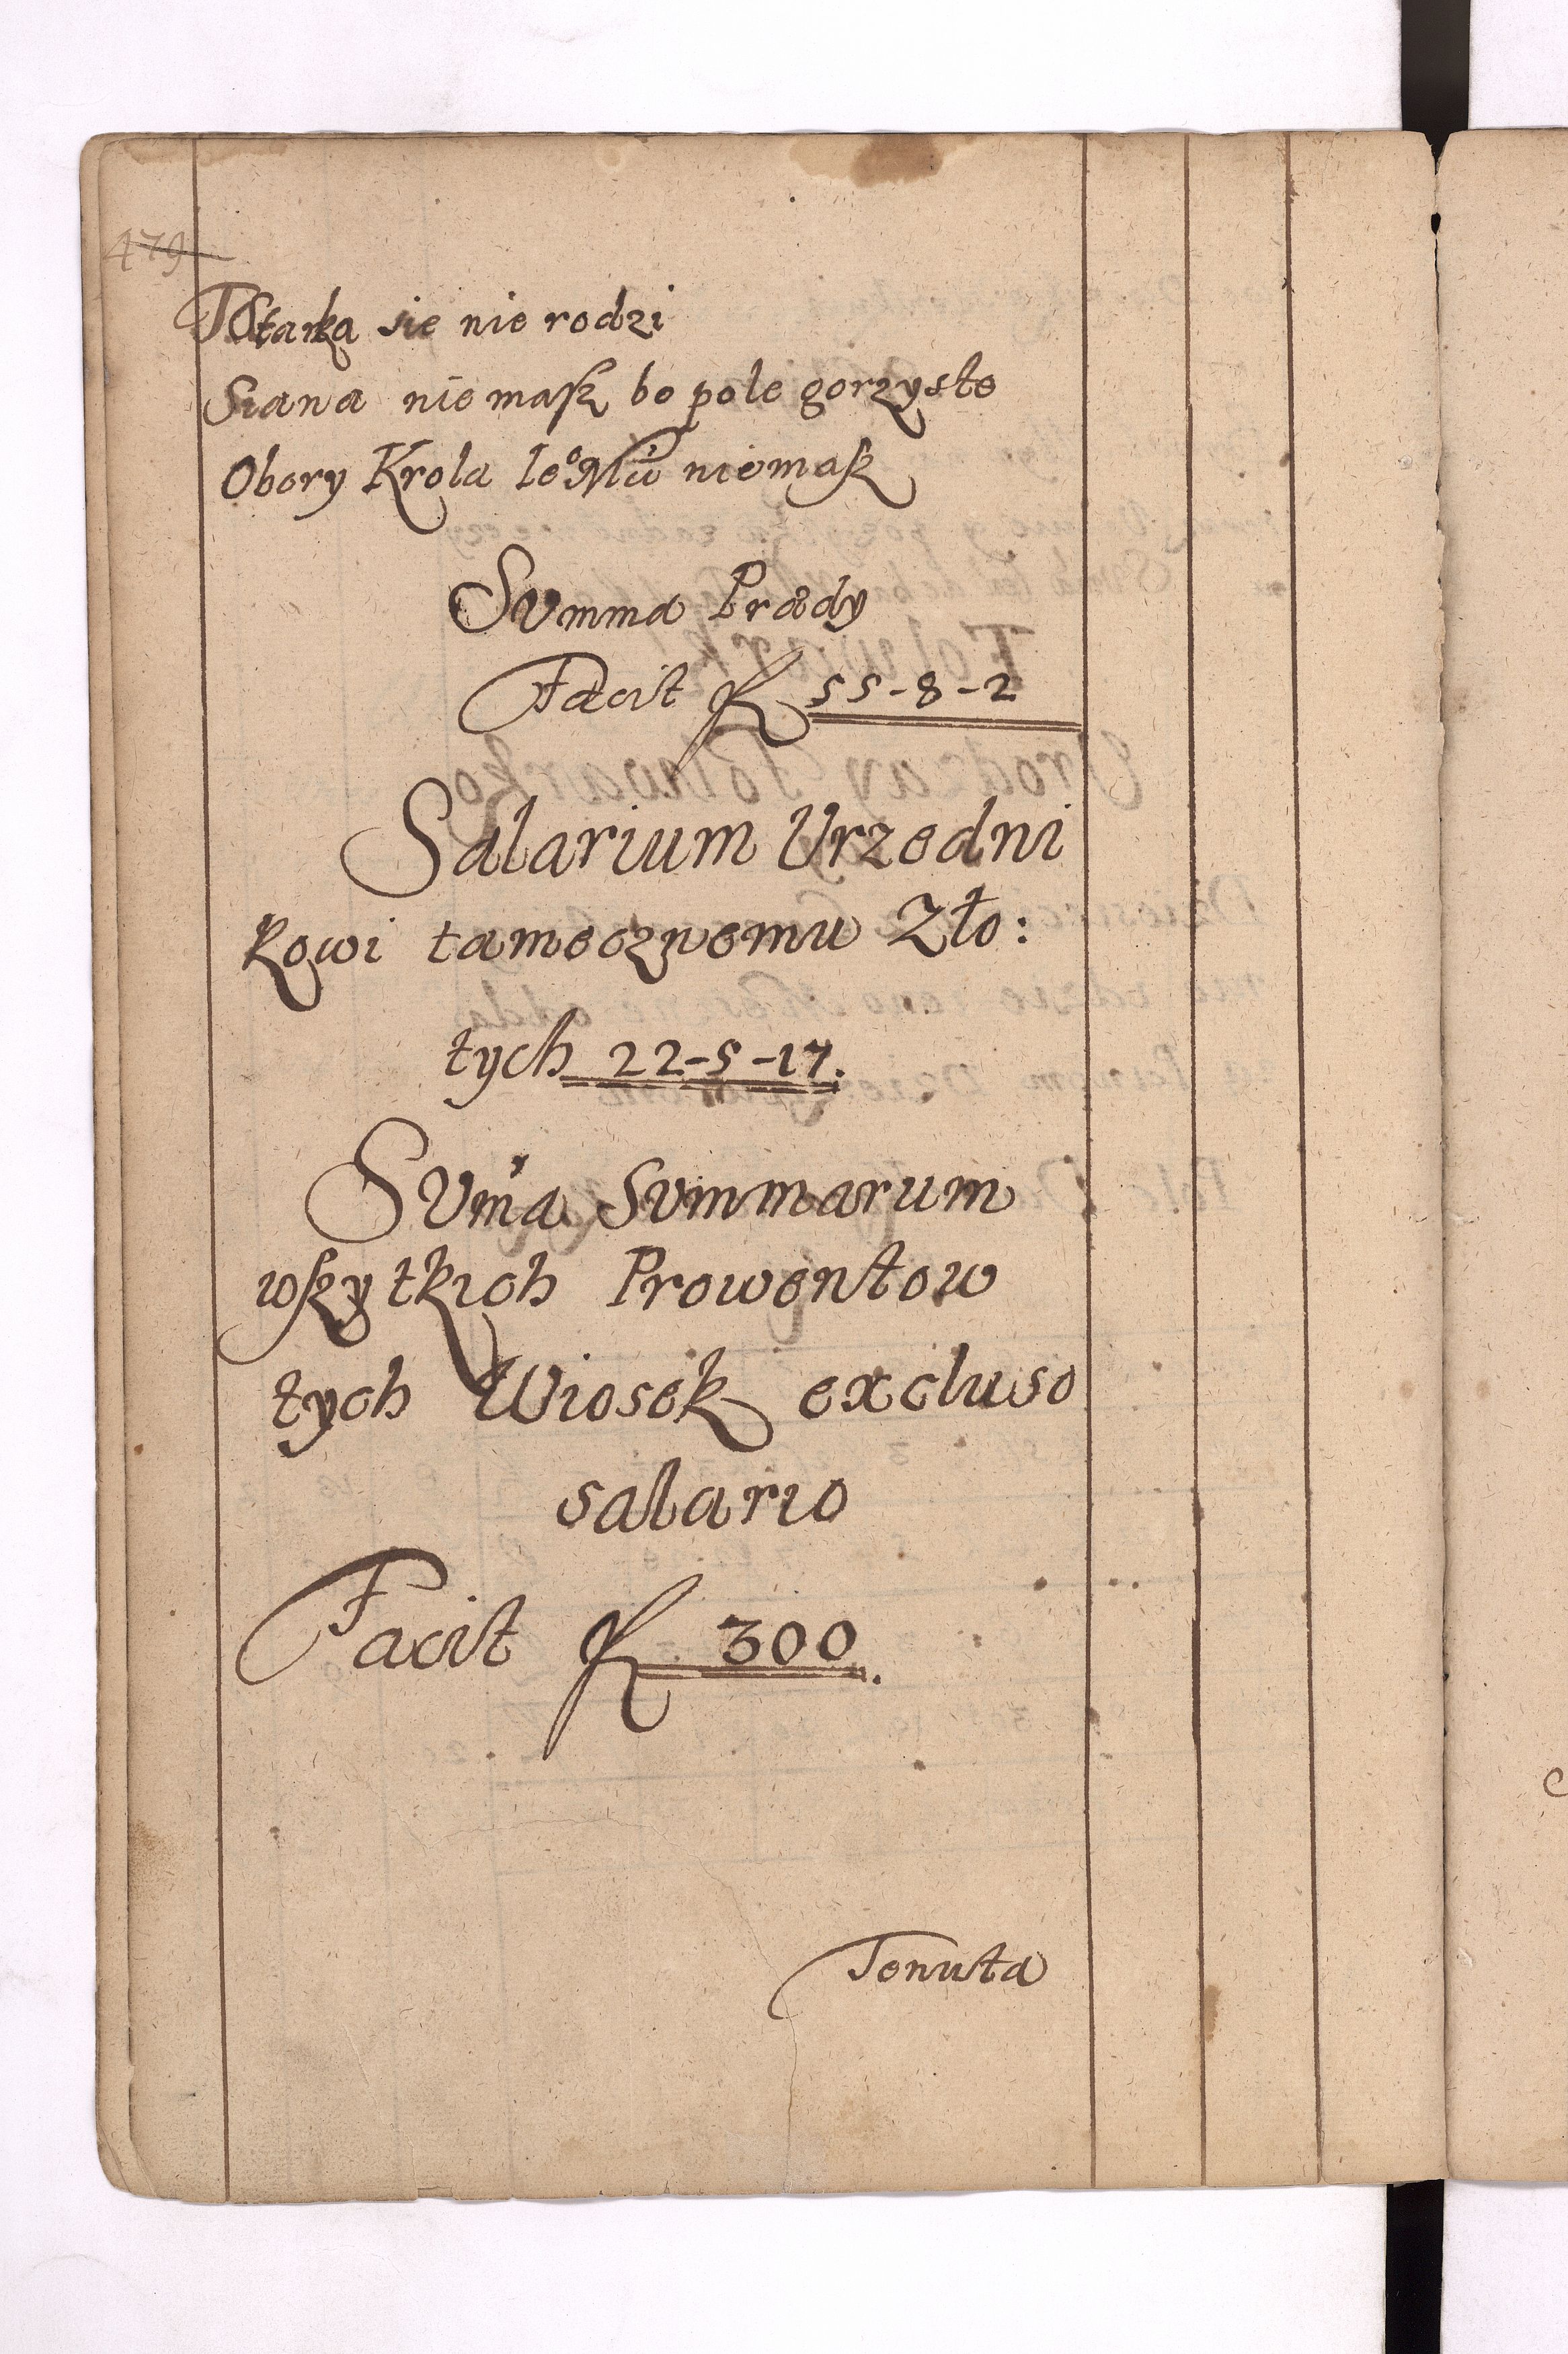 479
Tatarka sie nie rodzi
Siana nie masz bo pole gorzyste
Obory Krola Ieº Mći niemasz
Summa Prædy
Facit fl 55-8-2
Salarium Vrzedni
kowi tamecznemu Zło:
tych 22-5-17.
Sum̄a Summarum
wszytkich Prowentow
tych Wiosek excluso
salario
Facit fl 300.
Tenuta